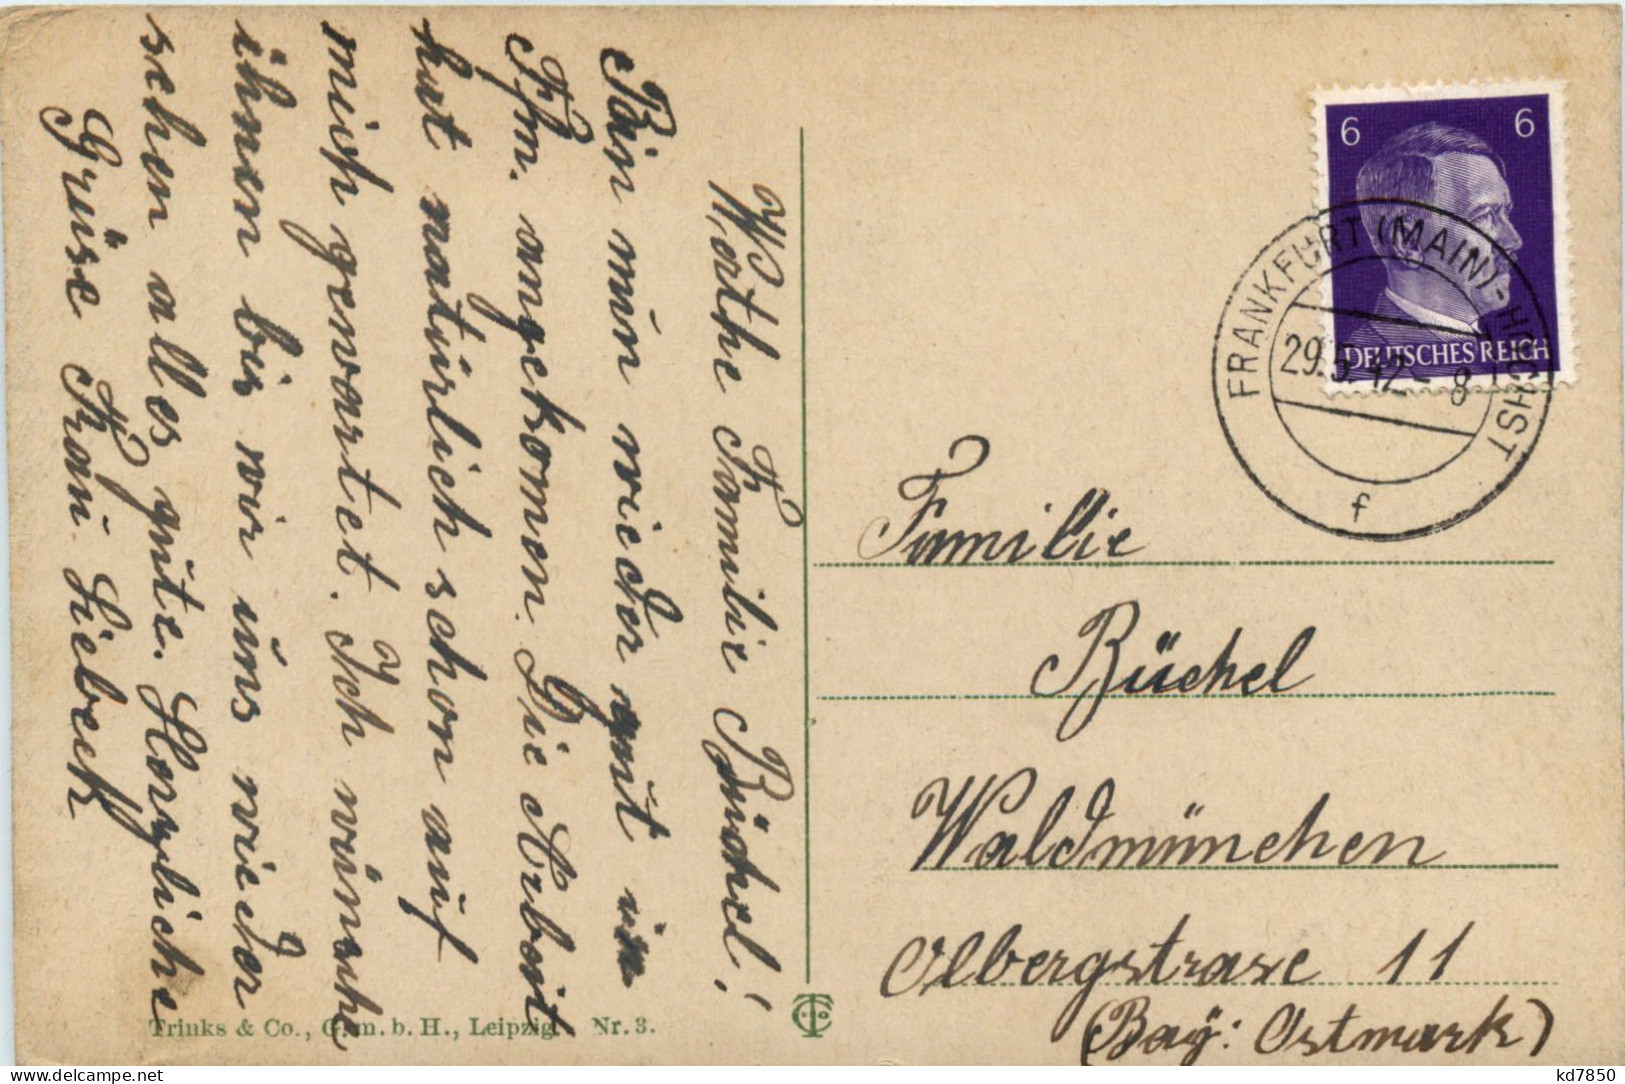 Werthe Familie Büchel!
Bin nun wieder gut in
Ffm. angekomen. Die Arbeit
hat natürlich schon auf
mich gewartet. Ich wünsche
ihnen bis wir uns wieder
sehen alles gute. Herzliche
Grüse Frau Siebeck
Trinks & Co., G.m.b.H., Leipzig. Nr. 3.
6 6
DEUTSCHES REICH
FRANKFURT (MAIN)-HÖCHST
29.5.42-8
f
Familie
Büchel
Waldmünchen
Olbergstrase 11
(Bay: Ostmark)
kd7850